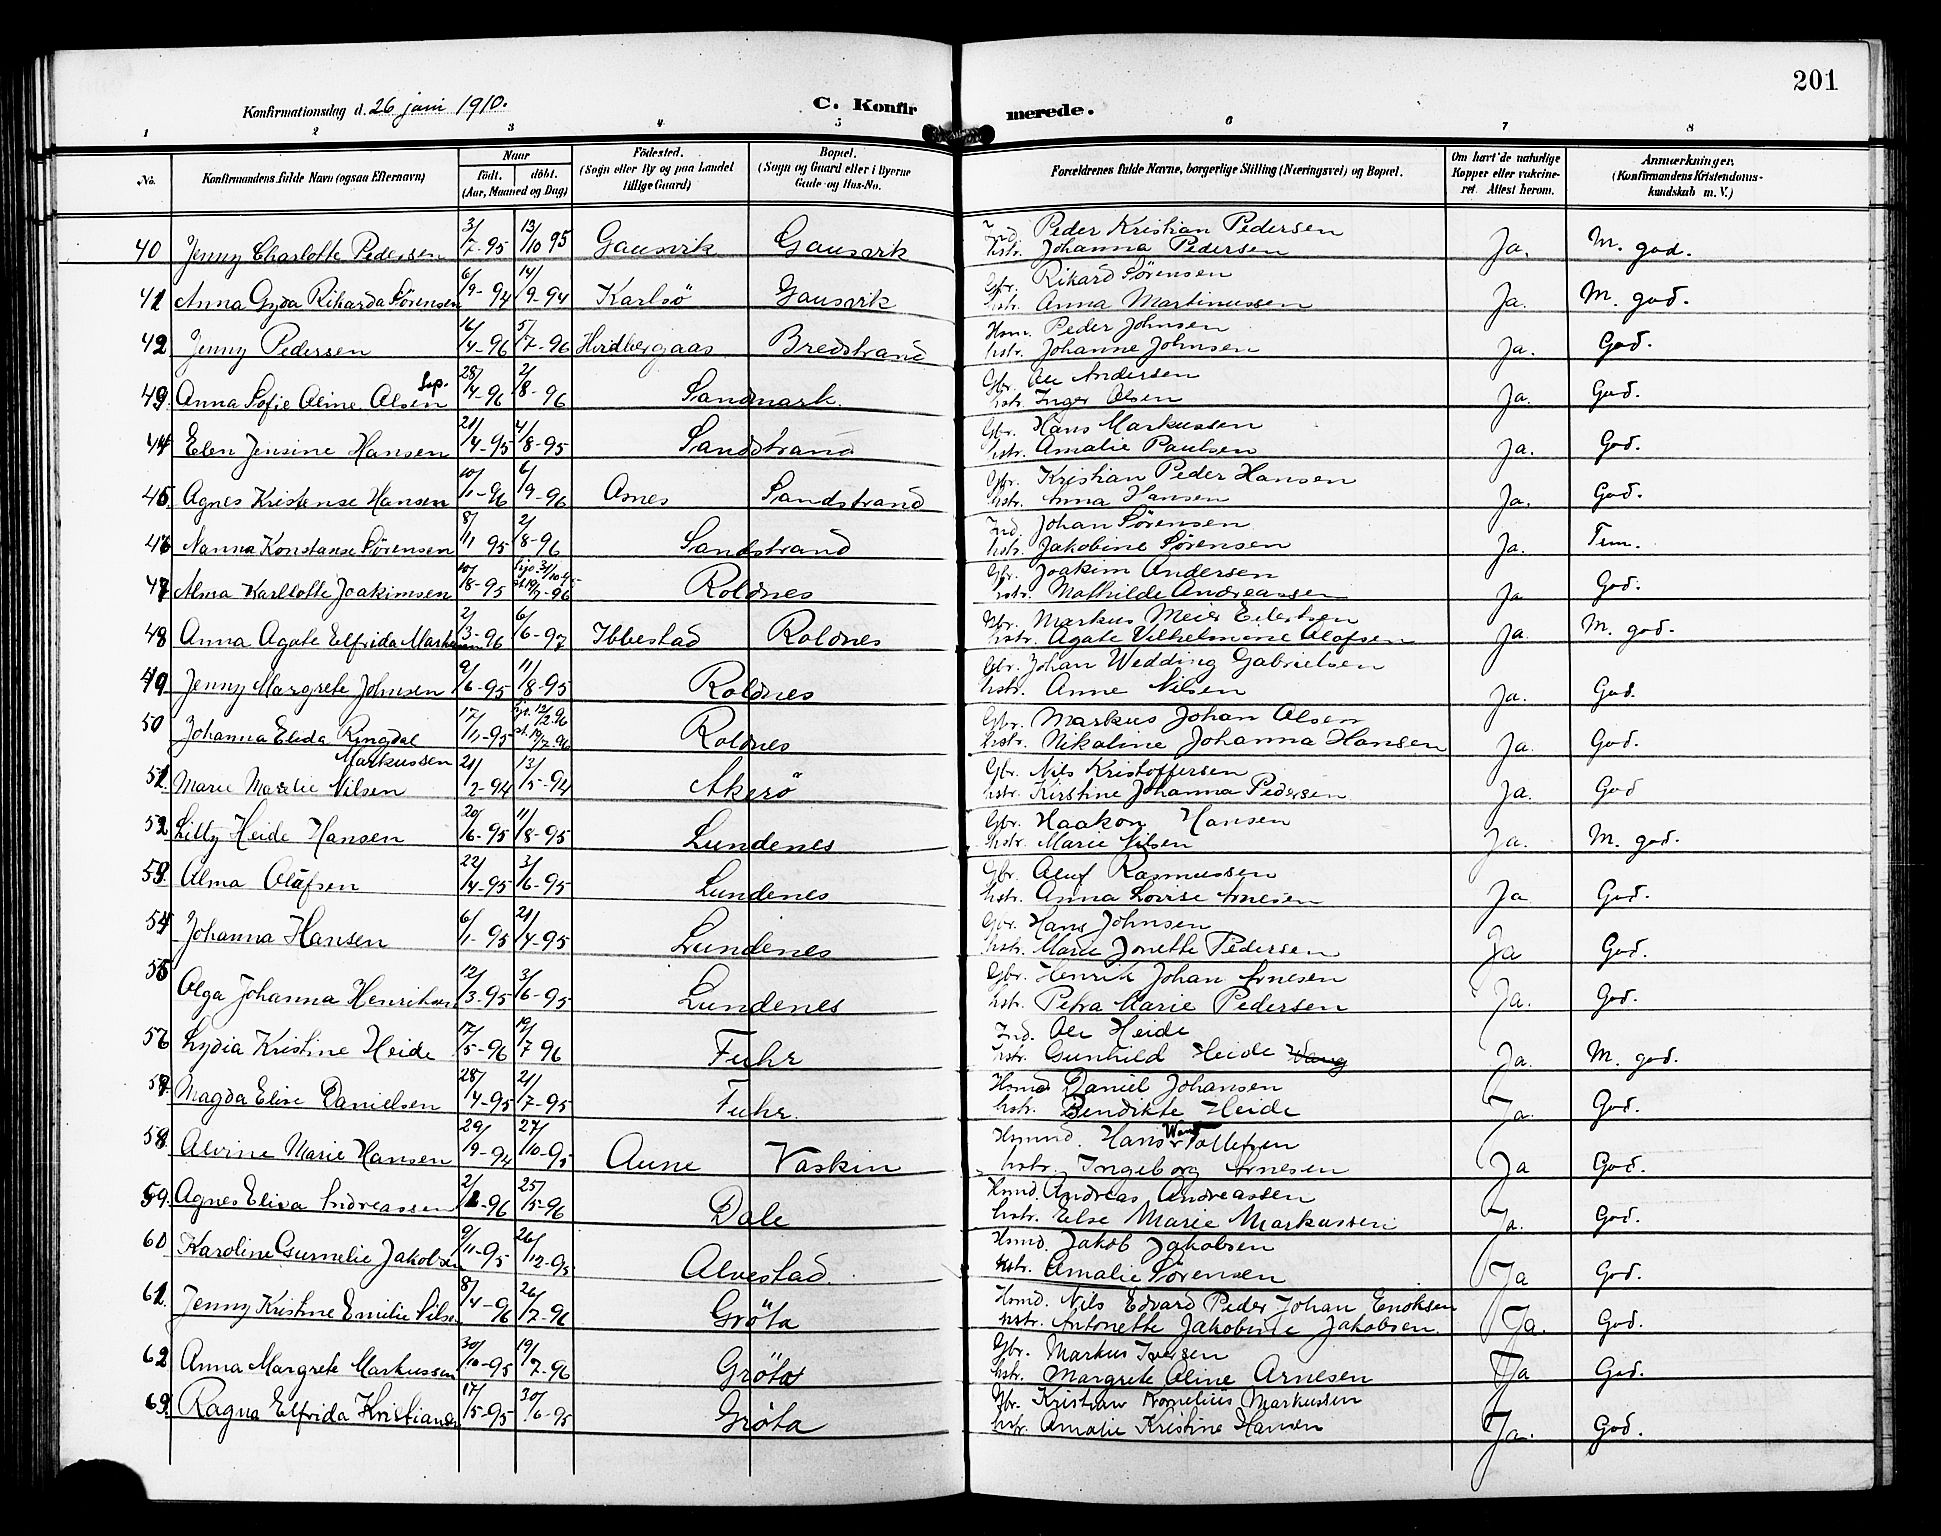 201
Konfirmationsdag d. 26 juni 1910.
C. Konfirmerede.
1 2 3 4 5 6 7 8
No.
Konfirmandens fulde Navn (ogsaa Efternavn)
Naar
födt. döbt.
(Aar, Maaned og Dag)
Födested.
(Sogn eller By og paa Landet tillige Gaard)
Bopæl.
(Sogn og Gaard eller i Byerne Gade- og Hus-No.
Forældrenes fulde Navne, borgerlige Stilling (Næringsvei) og Bopæl.
Om havt de naturlige Kopper eller vakcineret. Attest herom.
Anmærkninger.
(Konfirmandens Kristendomskundskab m. V.)
40 Jenny Charlotte Pedersen 3/7-95 13/10 95 Gausvik Gausvik Ind. Peder Kristian Pedersen Ja. M. god.
hstr. Johanna Pedersen
41 Anna Gyda Rikarda Sörensen 6/9-94 14/9-94 Karlsö Gausvik Gbr. Rikard Sörensen Ja. M. god.
hstr. Anna Martinussen
42 Jenny Pedersen 16/4-96 5/7-96 Bredstrand Hsm. Peder Johnsen Ja. God.
hstr. Johanne Johnsen
43 Anna Sofie Aline Olsen Lap. 28/4-96 2/8-96 Sandmark. Gbr. Ole Andersen Ja. God.
hstr. Inger Olsen
44 Elen Jensine Hansen 21/4-95 4/8-95 Sandstrand Gbr. Hans Markussen Ja. God.
hstr. Amalie Paulsen
45. Agnes Kristense Hansen 10/1-96 6/9-96 Aanes Sandstrand Gbr. Kristian Peder Hansen Ja. God.
hstr. Anna Hansen
46 Nanna Konstanse Sörensen 8/11 95 2/8-96 Sandstrand Ind. Johan Sörensen Ja. Tem.
hstr. Jakobine Sörensen
47 Alma Karllotte Joakimsen 10/8-95 Roldnes Gbr. Joakim Andersen Ja God.
hstr. Mathilde Andreassen
48 Anna Agate Elfrida Markussen 2/3-96 6/6-97 Ibbestad Roldnes Gbr. Markus Meier Eilertsen Ja. M. god.
hstr. Agate Vilhelmine Olofsen
49 Jenny Margrete Johnsen 9/6-95 11/8-95 Roldnes Gbr. Johan Wedding Gabrielsen Ja. God.
hstr. Anne Nilsen
50 Johanna Elida Ringdal 17/11-95 Roldnes Gbr. Markus Johan Olsen Ja. God.
Markussen hstr. Nikoline Johanna Hansen
51. Marie Mardie Nilsen 21/2-94 13/5-94 Akerö Gbr. Nils Kristoffersen Ja. God
hstr. Kirstine Johanna Pedersen
52 Lilly Heide Hansen 20/6-95 11/8-95 Lundenes Gbr. Haakon Hansen Ja. M. god.
hstr. Marie Nilsen
53. Alma Olafsen 22/4-95 3/6-95 Lundenes Gbr. Oluf Rasmussen Ja God.
hstr. Anna Lovise Arnesen
54 Johanna Hansen 6/1-95 21/4-95 Lundenes Gbr. Hans Johnsen Ja God.
hstr. Marie Jonette Pedersen
55 Olga Johanna Henriksen 12/3-95 3/6-95 Lundenes Gbr. Henrik Johan Arnesen Ja. God.
hstr. Petra Marie Pedersen
56 Lydia Kristine Heide 17/5-96 19/7 96 Fuhr Ind. Ole Heide Ja. M. god.
hstr. Gunhild Heide Wang
57. Magda Elise Danielsen 28/4-95 21/7-95 Fuhr. Hsmd Daniel Johansen Ja. God.
hstr. Bendikte Heide
58. Alvine Marie Hansen 29/9-94 27/10-95 Aune Vaskin Hsmd. Hans Wang Tollefsen Ja God.
hstr. Ingeborg Arnesen
59. Agnes Elisa Andreassen 25/5-96 Dale Hsmd. Andreas Andreassen Ja. God.
hstr. Else Marie Markussen
60 Karoline Jakobsen 9/11-95 26/12-95 Alvestad. Hsmd. Jakob Jakobsen Ja God.
hstr. Amalie Sörensen
61. Jenny Kristine Emilie Nilsen 8/4-96 26/7-96 Gröta Hsmd. Nils Edvard Peder Johan Enoksen Ja. God.
hstr. Antonette Jakobine Jakobsen.
62 Anna Margrete Markussen 30/10-95 19/7-96 Gröta Gbr. Markus Iversen Ja God.
hstr. Margrete Oline Arnesen
63. Ragna Elfrida Kristiansen 17/5-95 30/6-95 Gröta Gbr. Kristian Kornelius Markussen Ja. God.
hstr. Amalie Kristine Hansen